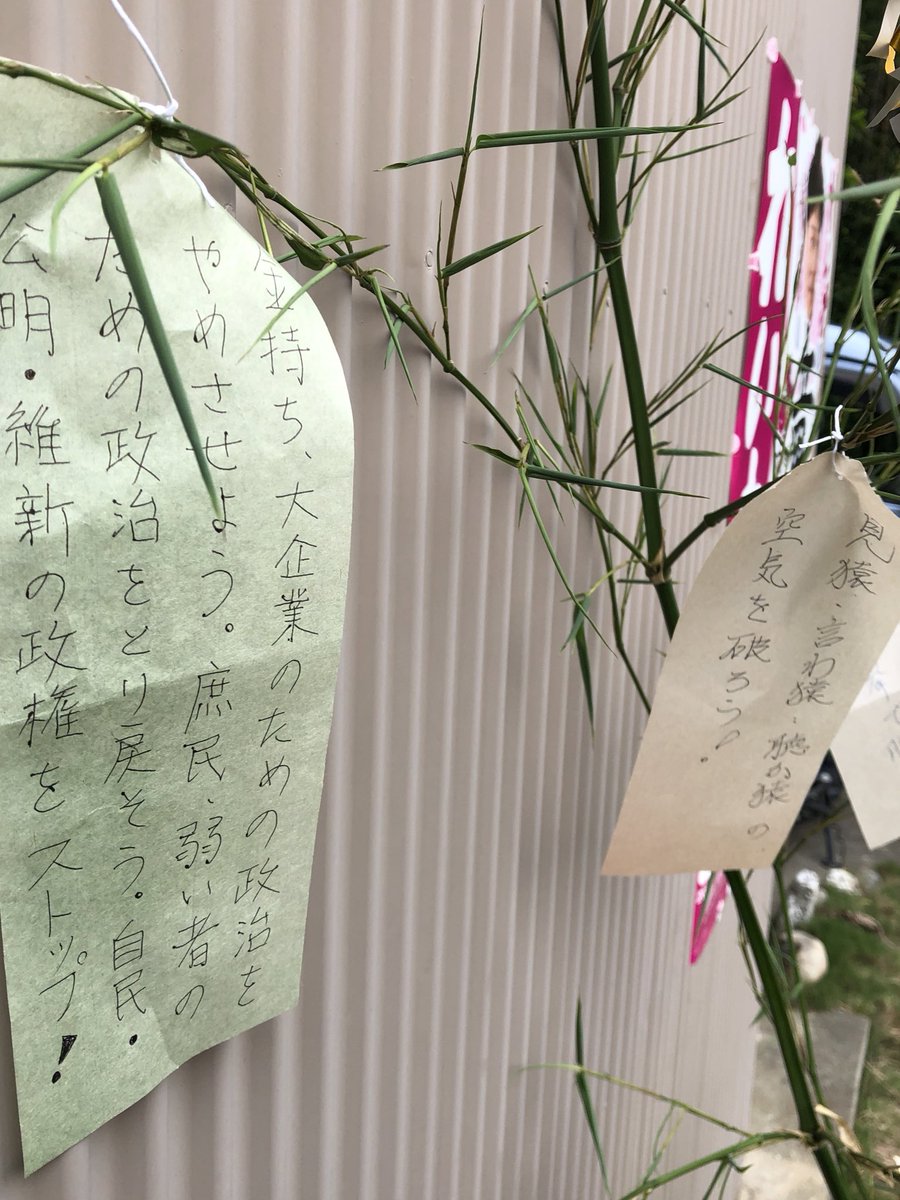 金持ち、大企業のための政治を
やめさせよう。庶民、弱い者の
ための政治をとり戻そう。自民・
公明・維新の政権をストップ!
見猿、言わ猿、聴か猿の
空気を破ろう!